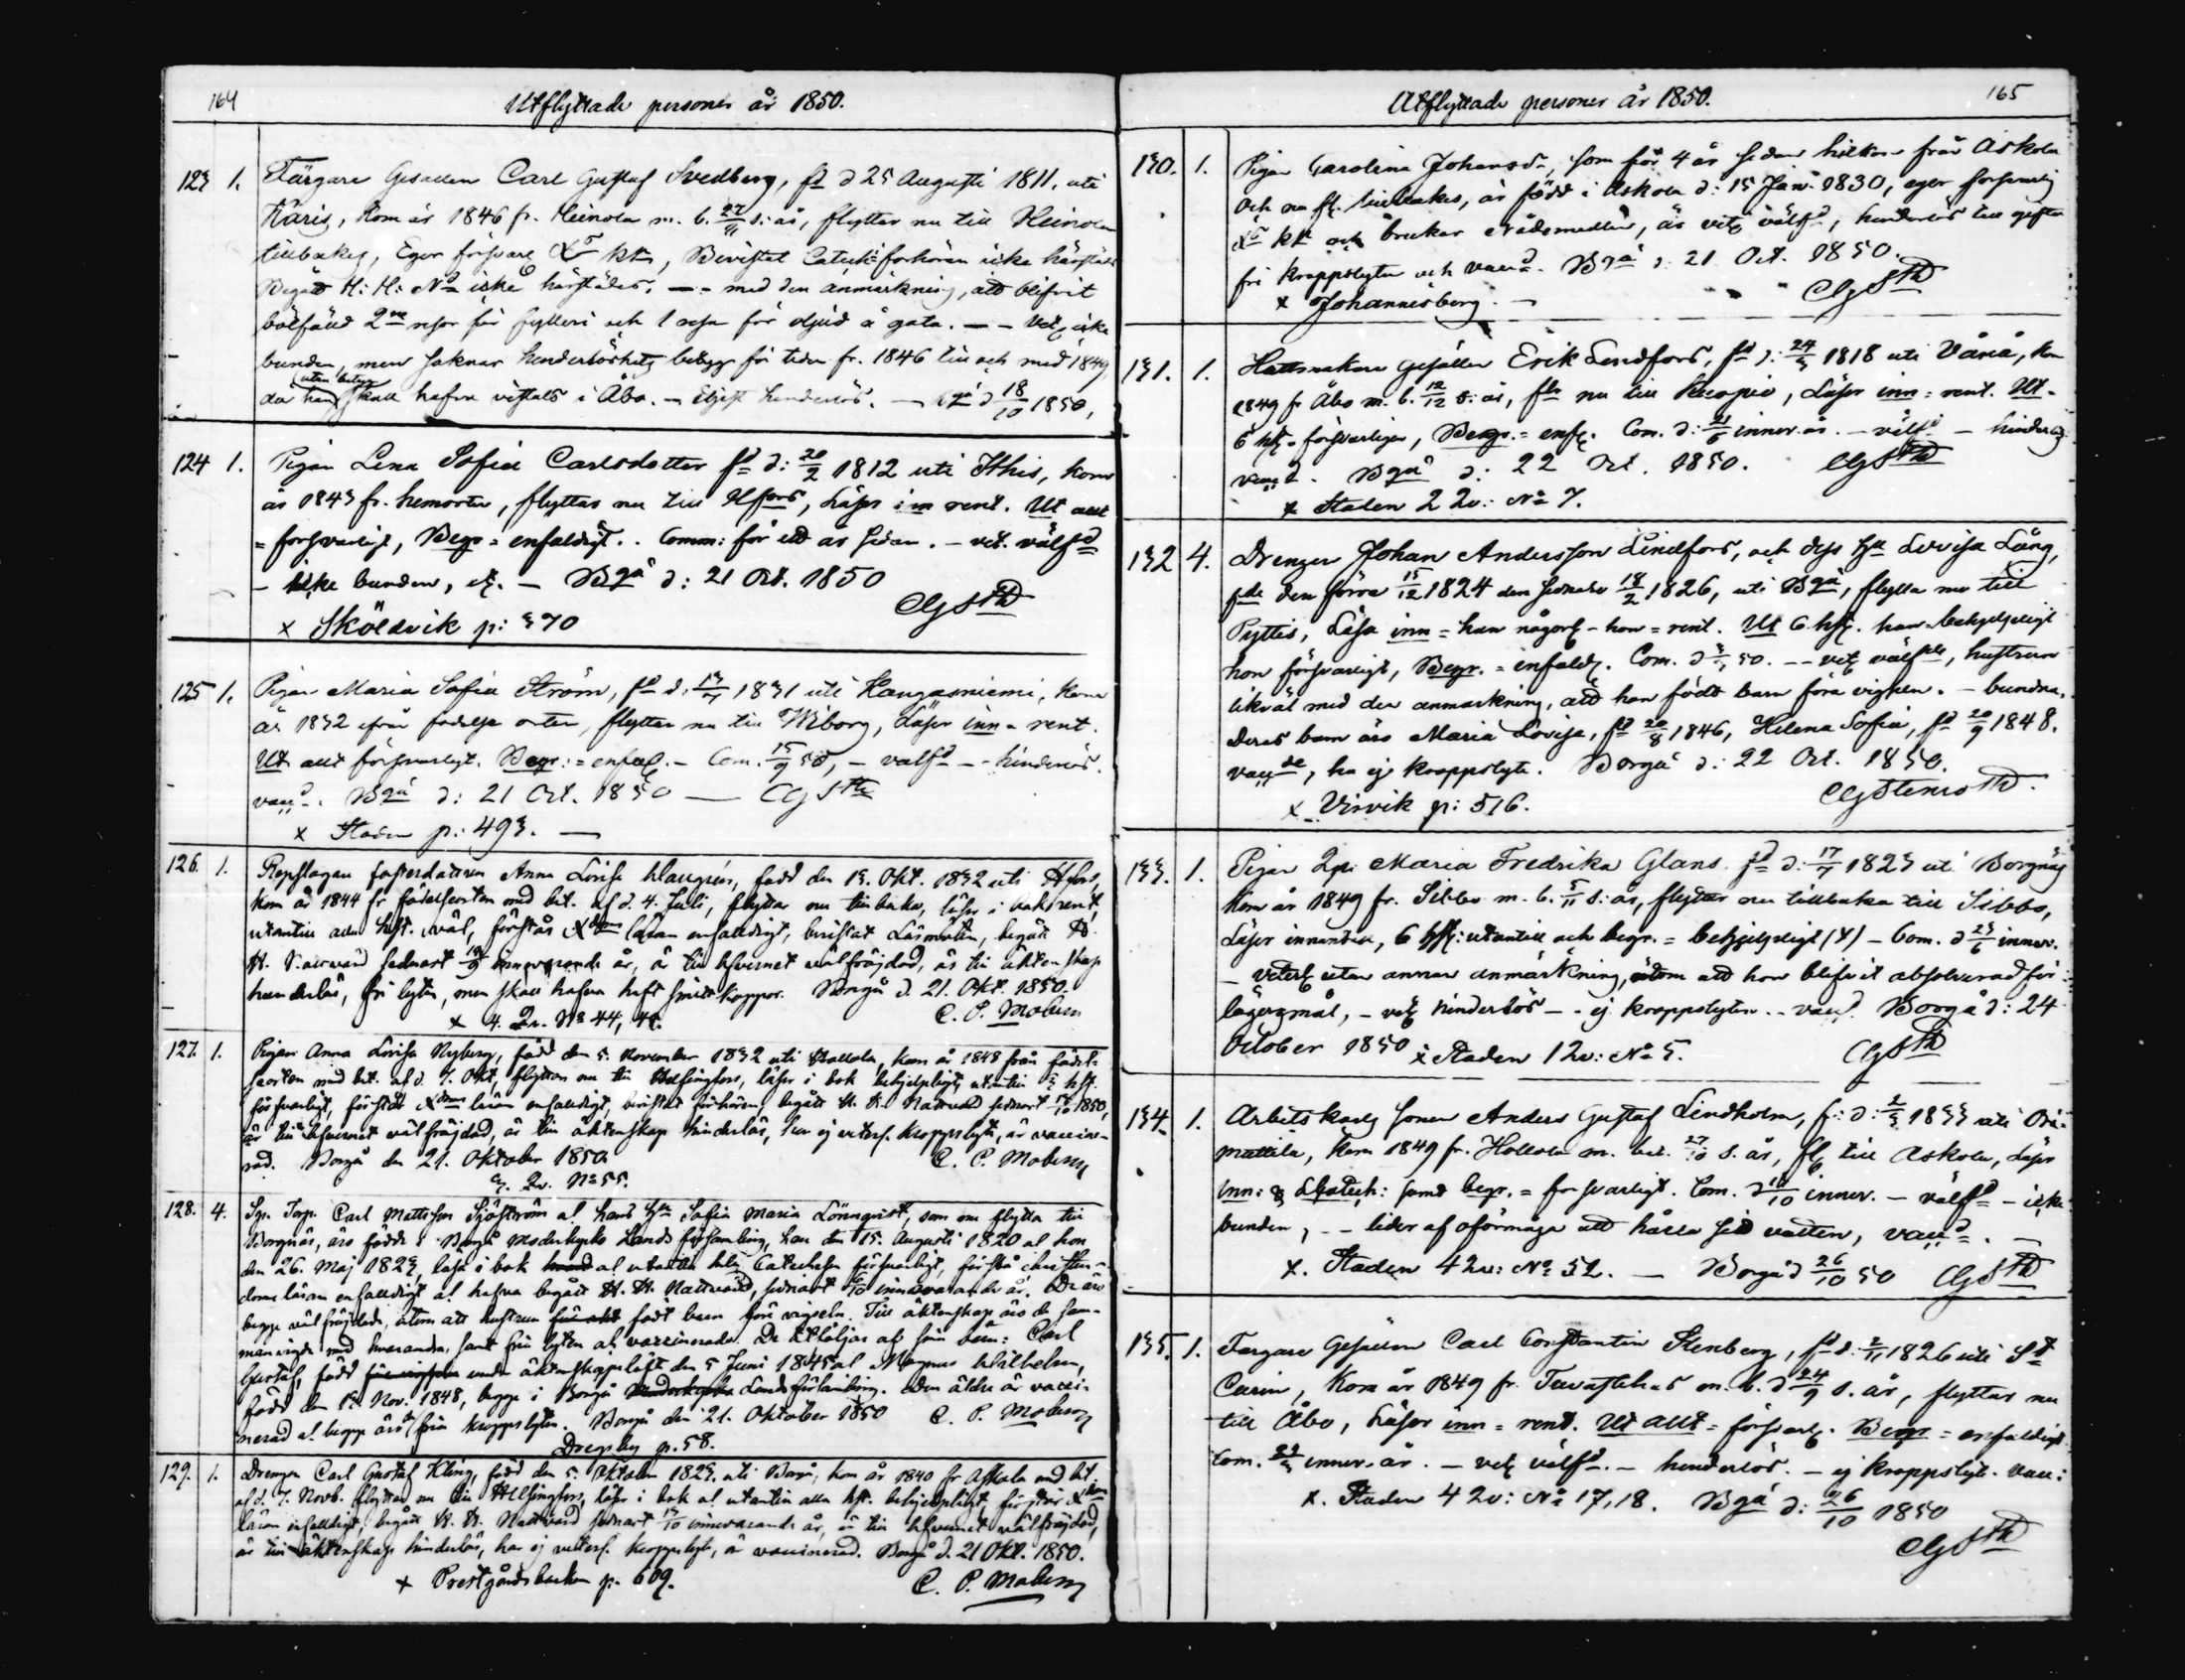 164
Utflyttade personer år 1850.
123 1. Färgare Gesällen Carl Gustaf Svedberg, fd d 25 Augusti 1811, uti
Karis, kom år 1846 fr. Heinola m. b. 27/11 s. år, flyttar nu till Heinola
tillbakes, Eger försvarl. Xds kkn, Bevistat Catech: förhören icke härstädes
Begått H: H: Nd icke härstädes. — med den anmärkning, att blifvit
bötfälld 2ne resor för fylleri och 1 resa för oljud å gata. — — icke
bunden, men saknar hinderlöshets betyg för tiden fr. 1846 till och med 1849,
då han (utan betyg) skall hafva vistats i Åbo. — Eljest hinderlös. — Bgå d 18/10 1850,
124 1. Pigan Lena Sofia Carlsdotter fd d: 20/2 1812 uti Ithis, kom
år 1843 fr. hemorten, flyttar nu till Hfors, Läser inn rent. Ut allt
= försvarligt, Begr = enfaldigt. Comm: för ett år sedan. — vit. välfd
— icke bunden, — Bgå d: 21 Oct. 1850
x Sköldvik p: 370 CGStd
125 1. Pigan Maria Sofia Ström, fd d. 1831 uti Kangasniemi, kom
år 1832 ifrån födelse orten, flyttar nu till Wiborg, Läser inn = rent.
Ut allt försvarligt. Begr: = enfald. — Com. 15/9 50, — välfd — hinderlös.
vacc. Bgå d: 21 Oct. 1850 — CGStd
x Staden p: 493. —
126. 1. Repslagare fosterdottren Anna Lovisa, född den 13. Okt. 1832 uti Hfors,
kom år 1844 fr födelseorten med bet. af d. 4. Juli, flyttar nu tillbaka, läser i bok rent,
utantill alla hft. väl, förstår Xdoms läran enfaldigt, bevistat Läsmöten, begått H.
H. Nattvard sednast innevarande år, är till lefvernet välfräjdad, är till äktenskap
hinderlös, fri lyten, men skall hafva haft smittkoppor. Borgå d. 21. Okt. 1850.
x 4. Qv. No 44, C. P. Moberg
127. 1. Pigan Anna Lovisa Nyberg, född den 5. November 1832 uti Hollola, kom år 1848 från födel-
seorten med bet. af d. 7. Okt, flyttar nu till Helsingfors, läser i bok behjelpligt, utantill 3 hft.
försvarligt, förstår Xdoms läran enfaldigt, bevistat förhören, begått H. H. Nattvard sednast 1850,
är till lefvernet välfräjdad, är till äktenskap hinderlös, har ej veterl. kroppslyte, är vaccine-
rad. Borgå den 21. Oktober 1850. C. P. Moberg
3. Qv. No 55.
128. 4. Carl Mattsson Sjöström och hans hu Sofia Maria Lönnqvist, som nu flytta till
Borgnäs, äro födde i Borgå Moderkyrko Lands församling, han den 15. Augusti 1820 och hon
den 26. Maj 1823, läsa i bok och utantill hela Catechesen försvarligt, förstå christen-
doms läran enfaldigt och hafva begått H. H. Nattvard, sednast innevarande år. De äro
begge välfräjdade, utom att hustrun födt barn före vigseln. Till äktenskap äro de sam-
manvigda med hvarandra, samt fria lyten och vaccinerade. De åtföljas af sina barn: Carl
Gustaf, född under äktenskapslöfte den 5 Juni 1845 och Magnus Wilhelm,
född den 13. Nov. 1848, begge i Borgå Landsförsamling. Den äldre är vacci-
nerad och begge äro fria kroppslyten. Borgå den 21. Oktober 1850 C. P. Moberg
Dregsby p. 58.
129. 1. Drengen Carl Gustaf Kling, född den 5. Oktober 1823, uti Borgå, kom år 1840 fr Askola med bet.
af d. 7. Novb. flyttar nu till Helsingfors, läser i bok och utantill alla hft. behjelpligt, förstår Xdoms
läran enfaldigt, begått H. H. Nattvard sednast innevarande år, är till lefvernet välfräjdad,
är till äktenskap hinderlös, har ej veterl. kroppslyte, är vaccinerad. Borgå d. 21 Okt. 1850.
+ Prestgårdsbacken p. 609. C. P. Moberg
Utflyttade personer år 1850.
165
130. 1. Pigan Carolina Johansdr, som för 4 år sedan hitkom från Askola
och nu fl. tillbakes, är född i Askola d: 15 Jan. 1830, eger försvarlig
Xds kkn och brukar nådemedlen, är vit. välfd, hinderlös till gifte
fri kroppslyten och vacc. Bgå d: 21 Oct. 1850.
x Johannisberg. — CGStd
131. 1. Hattmakare gesällen Erik Lindfors, fd d: 24/3 1818 uti Vånå, kom
1849 fr Åbo m. b. 12/12 s: år, flr nu till Kuopio, Läser inn = rent. Ut =
6 hft = försvarligen, Begr. = enf. Com. d: inner. år. — välfd — hinderlös
vacc. Bgå d: 22 Oct. 1850. CGStd
x Staden 2 Qv: No 7.
132 4. Drengen Johan Andersson Lindfors, och dess hu Lovisa Lång,
fde den förre 15/12 1824 den sednare 18/2 1826, uti Bgå, flytta nu till
Pyttis, Läsa inn = han någorl — hon = rent. Ut 6 hft. han behjelpligt
hon försvarligt, Begr. = enfald. Com. d 50. — — välfde, hustrun
likväl med den anmärkning, att hon födt barn före vigseln. — bundna.
Deras barn äro Maria Lovisa, fd 20/8 1846, Helena Sofia, fd 20/9 1848.
vaccde, ha ej kroppslyte. Borgå d: 22 Oct. 1850.
x Virvik p: 516. CGStenroth.
133. 1. Pigan Maria Fredrika Glans. fd d: 17/7 1823 uti Borgnäs
kom år 1849 fr. Sibbo m. b. 5/11 s: år, flyttar nu tillbaka till Sibbo,
Läser innantill, 6 hft: utantill och begr. = behjelpligt (4) — Com. d inner.
— veterl. utan annan anmärkning, än att hon blifvit absolverad för
lägersmål, — hinderlös — ej kroppslyten — vacc. Borgå d: 24
October 1850 x Staden 1 Qv: No 5. CGStd
134. 1. Arbetskarls sonen Anders Gustaf Lindholm, f: d: 2/3 1833 uti Ori-
mattila, kom 1849 fr. Hollola m. bet. 27/10 s. år, fl. till Askola, Läser
inn: & Catech: samt begr. = försvarligt. Com. d inner. — välfd — icke
bunden, — lider af oförmåga att hålla sitt vatten, vacc. —
x. Staden 4 Qv: No 52. — Borgå d 26/10 50 CGStd
135. 1. Färgare Gesällen Carl Constantin Stenberg, fd d. 2/11 1826 uti St
Carin, kom år 1849 fr. Tavastehus m. b. d 24/9 s. år, flyttar nu
till Åbo, Läser inn = rent. Ut allt = försvarl. Begr = enfaldigt
Com. inner. år. — välfd. — hinderlös. — ej kroppslyte. vacc:
x. Staden 4 Qv: No 17,18. Bgå d: 26/10 1850
CGStd